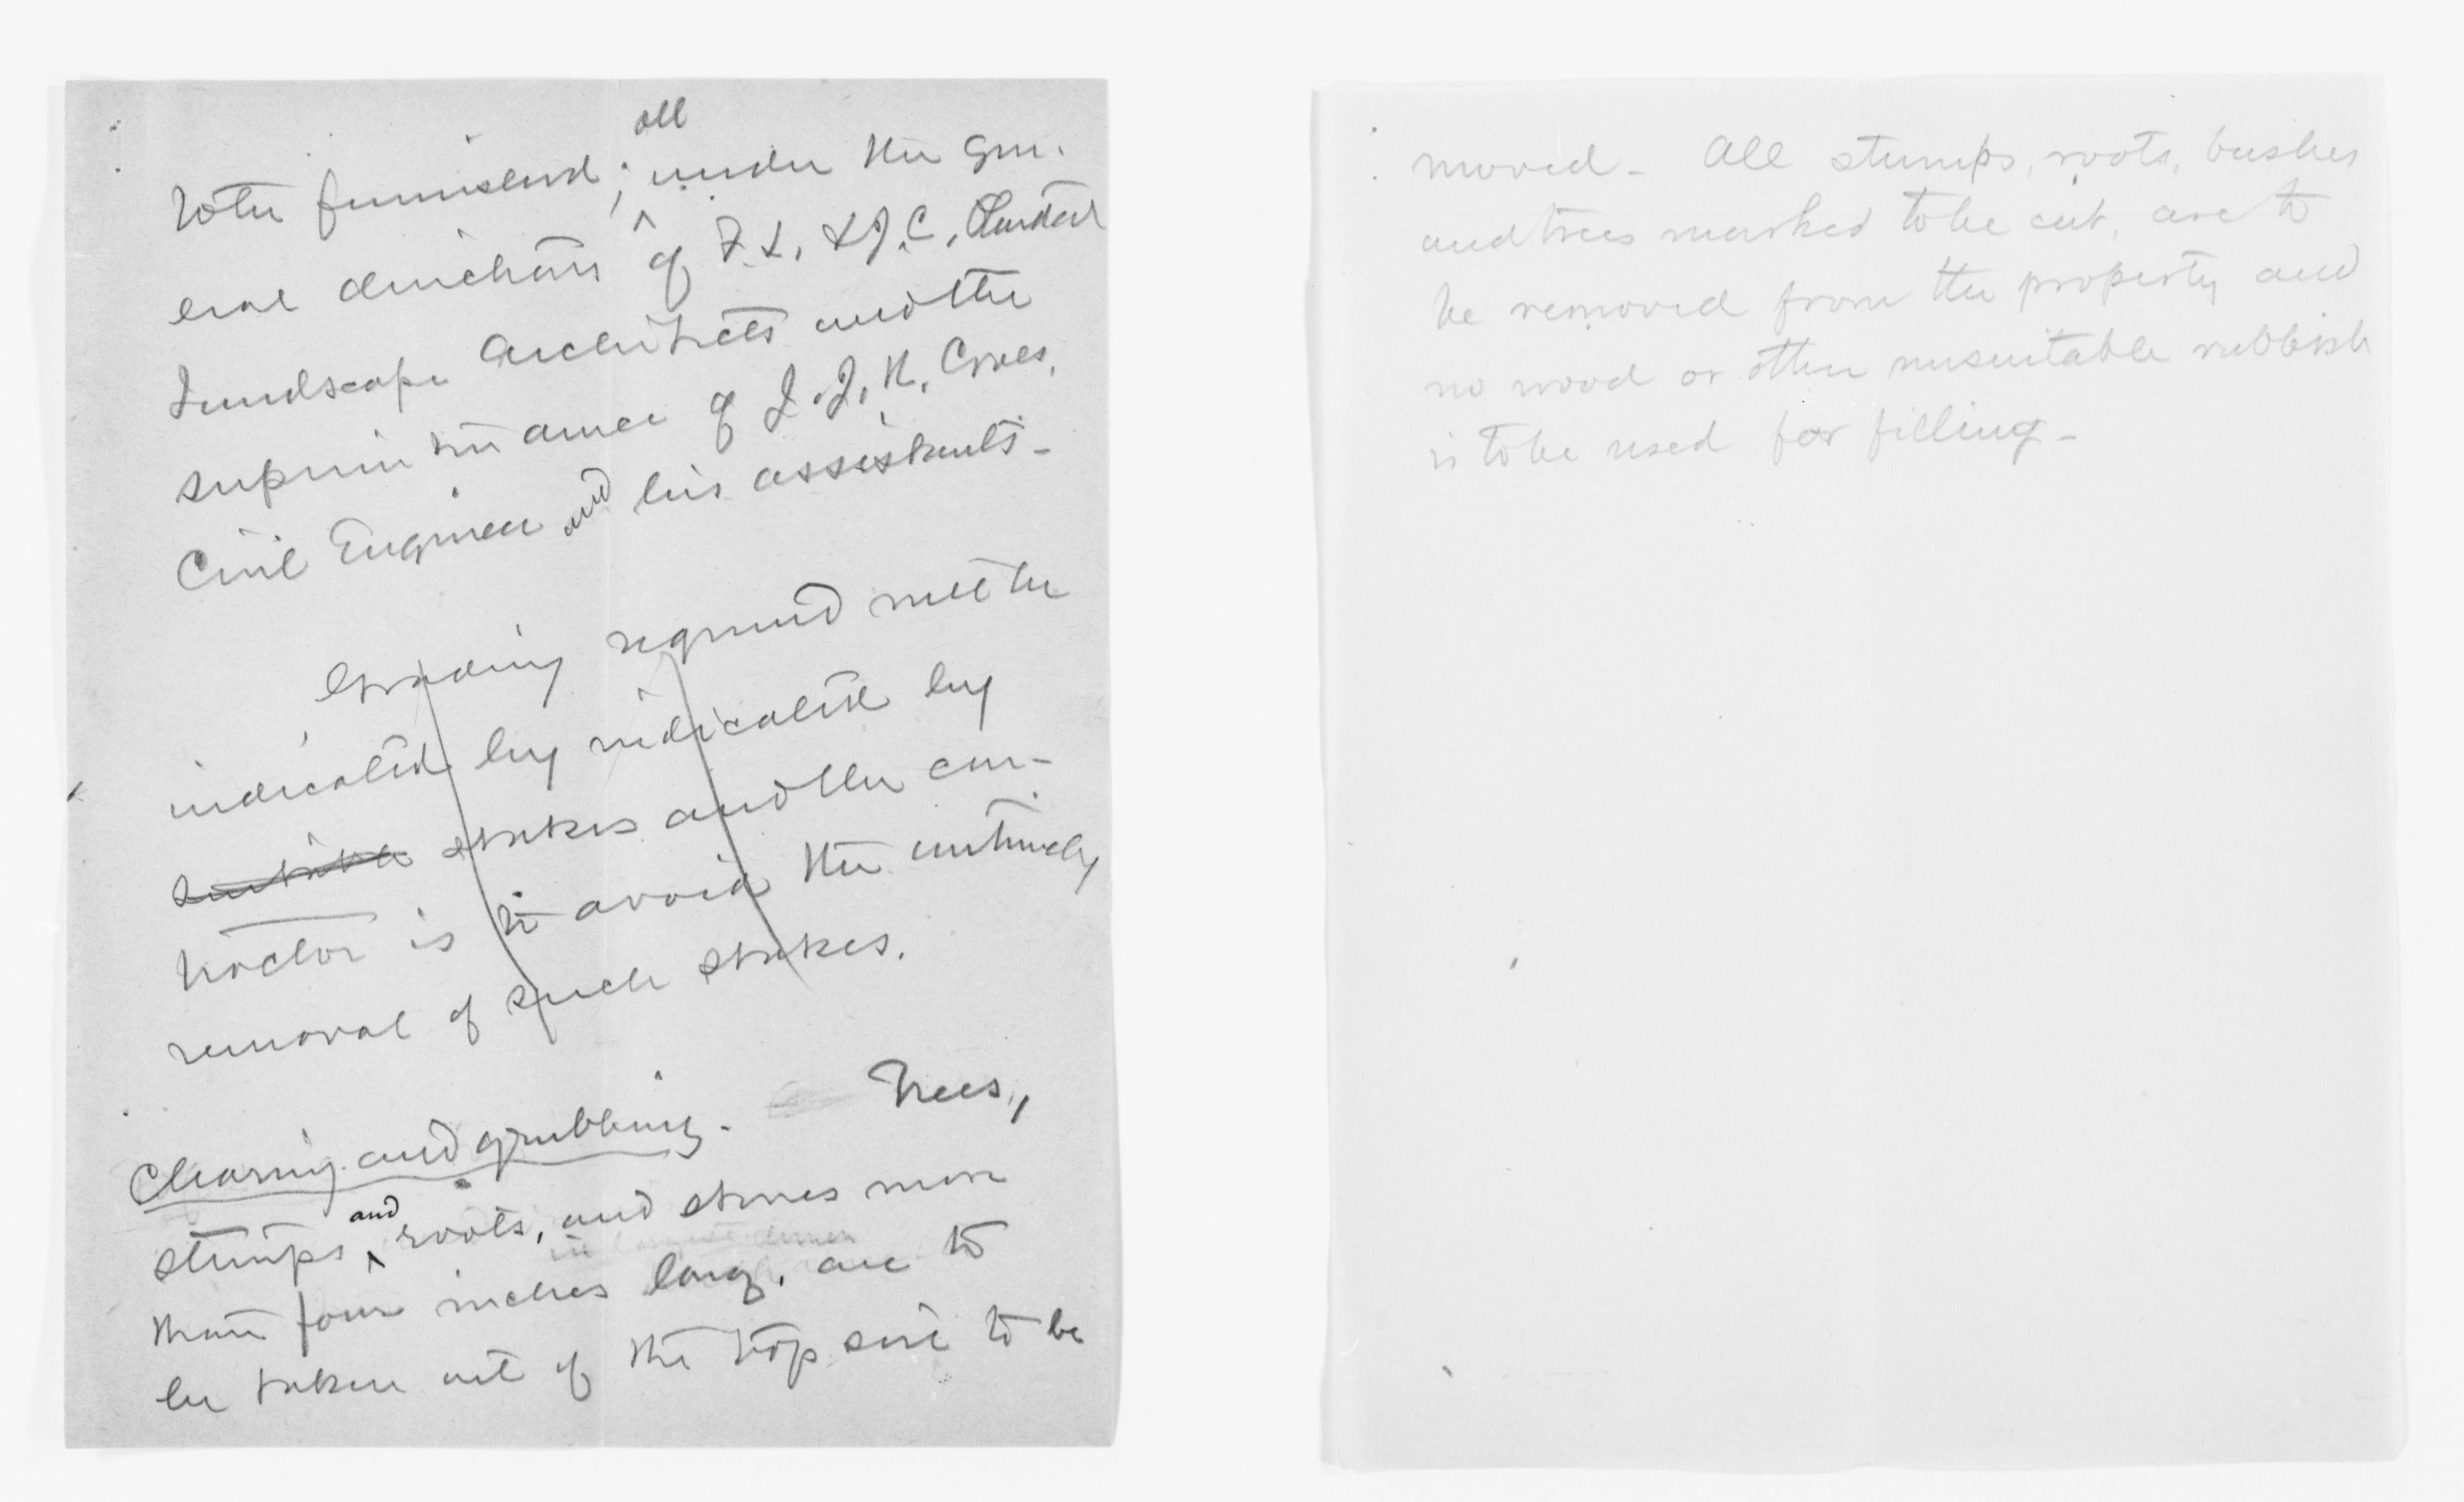 to be furnished; all under the gen-
eral directions of F. L. & J. C. Olmsted
Landscape Architects and the
superintendance of J. J. R. Croes,
Civil Engineer and his assistants -
Grading required will be
indicated by indicated by
suitable stakes and the con-
tractor is to avoid the untimely
removal of such stakes.
Clearing and grubbing. Trees,
stumps and roots, and stones more
than four inches long, are to
be taken out of the top soil to be
moved - All stumps, roots, bushes
and trees marked to be cut, are to
be removed from the property and
no wood or other unsuitable rubbish
is to be used for filling -